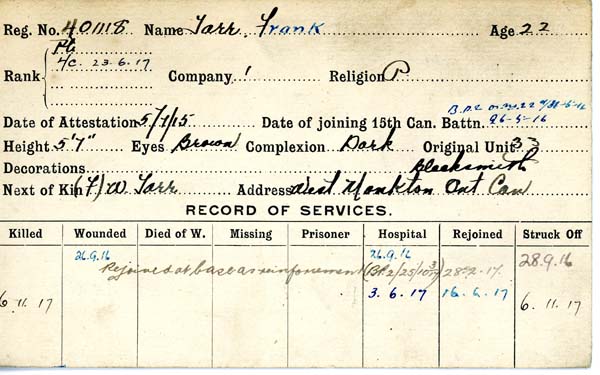 Reg. No. 401118 Name Tarr, Frank Age 22
Pte
Rank L/C. 23.6.17 Company 1 Religion P
Date of Attestation 5/1/15 Date of joining 15th Can. Battn. 26-5-16
B.P.2
Height 5'7" Eyes Brown Complexion Dark Original Unit 33
Decorations Blacksmith
Next of Kin (F) W Tarr Address West Monkton Ont Can
RECORD OF SERVICES.
Killed Wounded Died of W. Missing Prisoner Hospital Rejoined Struck Off
26.9.16 26.9.16 28.9.16
Rejoined at base as reinforcement (B.P.2/25/10) 28.2.17.
6.11.17 3.6.17 16.6.17 6.11.17